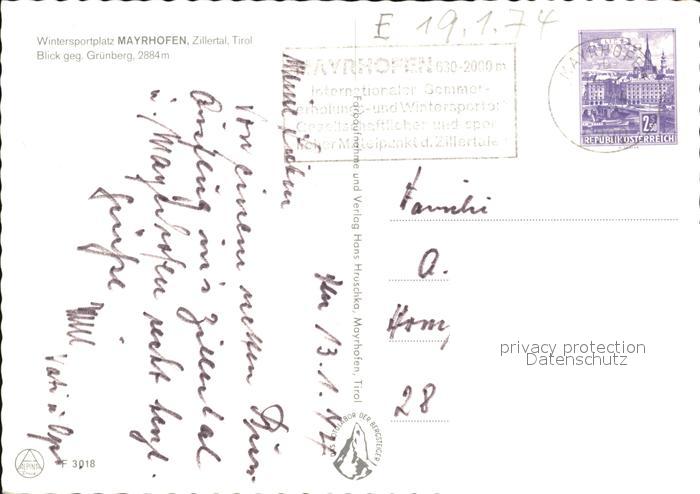 E 19.1.74
Wintersportplatz MAYRHOFEN, Zillertal, Tirol
Blick geg. Grünberg, 2884 m
MAYRHOFEN 630-2000 m
Internationaler Sommer-
erholungs- und Wintersportort
Gesellschaftlicher und spor
licher Mittelpunkt d. Zillertales
MAYRHOFEN
2.50
REPUBLIK ÖSTERREICH
Meine Lieben
den 13.1.74
Von einem netten
Ausflug ins Zillertal
u. Mayrhofen recht herzl.
Grüße
Vati u Opa
Farbaufnahme und Verlag Hans Hruschka, Mayrhofen, Tirol
Familie
A.
28
privacy protection
Datenschutz
FOTOLABOR DER BERGSTEIGER
ALPINA
F 3018